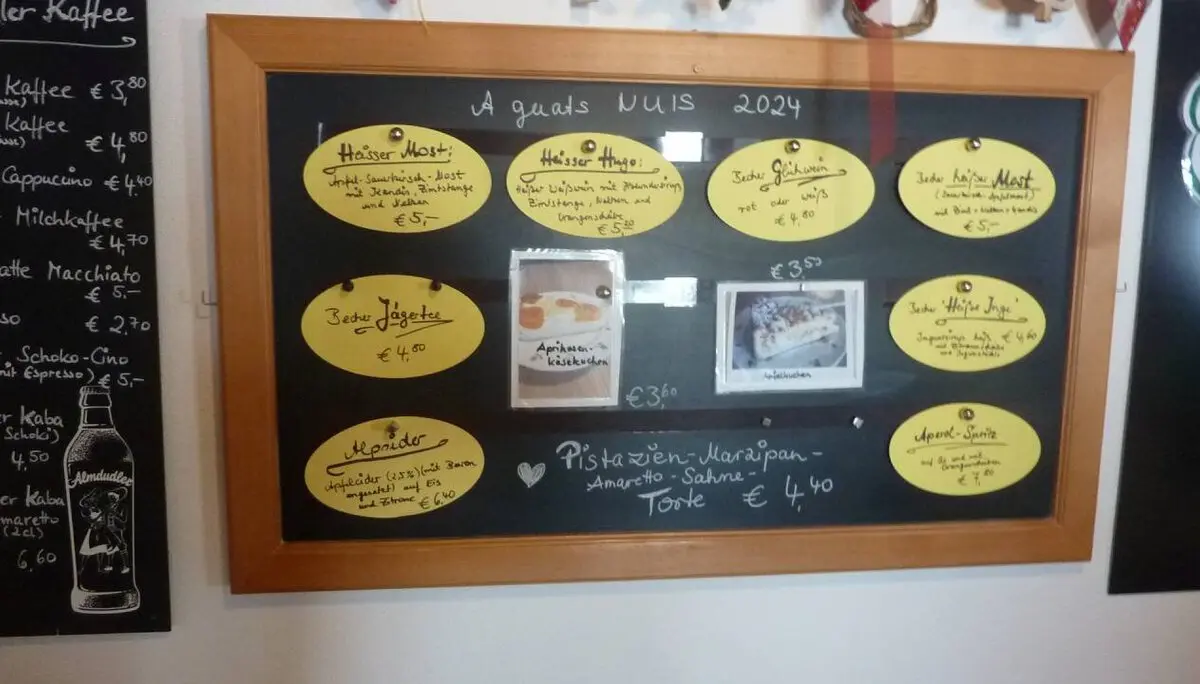 ler Kaffee
Kaffee € 3,80
Kaffee
€ 4,80
Cappuccino € 4,40
Milchkaffee
€ 4,70
atte Macchiato
€ 5,-
so € 2,70
Schoko-Cino
mit Espresso) € 5,-
er Kaba
Schoki)
4,50
er Kaba
maretto
(2cl)
6,60
Almdudler
A guats NUIS 2024
Heisser Most:
Apfel-Sauerkirsch-Most
mit Kandis, Zimtstange
und Nelken
€ 5,-
Heisser Hugo:
Heißer Weißwein mit
Zimtstange, Nelken und
Orangenscheibe
€ 5,20
Becher Glühwein
rot oder weiß
€ 4,80
Becher heißer Most
€ 5,-
Becher Jägertee
€ 4,80
Aprikosen-
käsekuchen
€ 3,60
€ 3,50
Becher 'Heiße Inge'
€ 4,60
Alpsider
Apfelcider (2,5%) (mit Beeren
angesetzt) auf Eis
und Zitrone € 6,40
Pistazien-Marzipan-
Amaretto-Sahne-
Torte € 4,40
Aperol-Spritz
auf Eis und mit
Orangenscheiben
€ 7,80